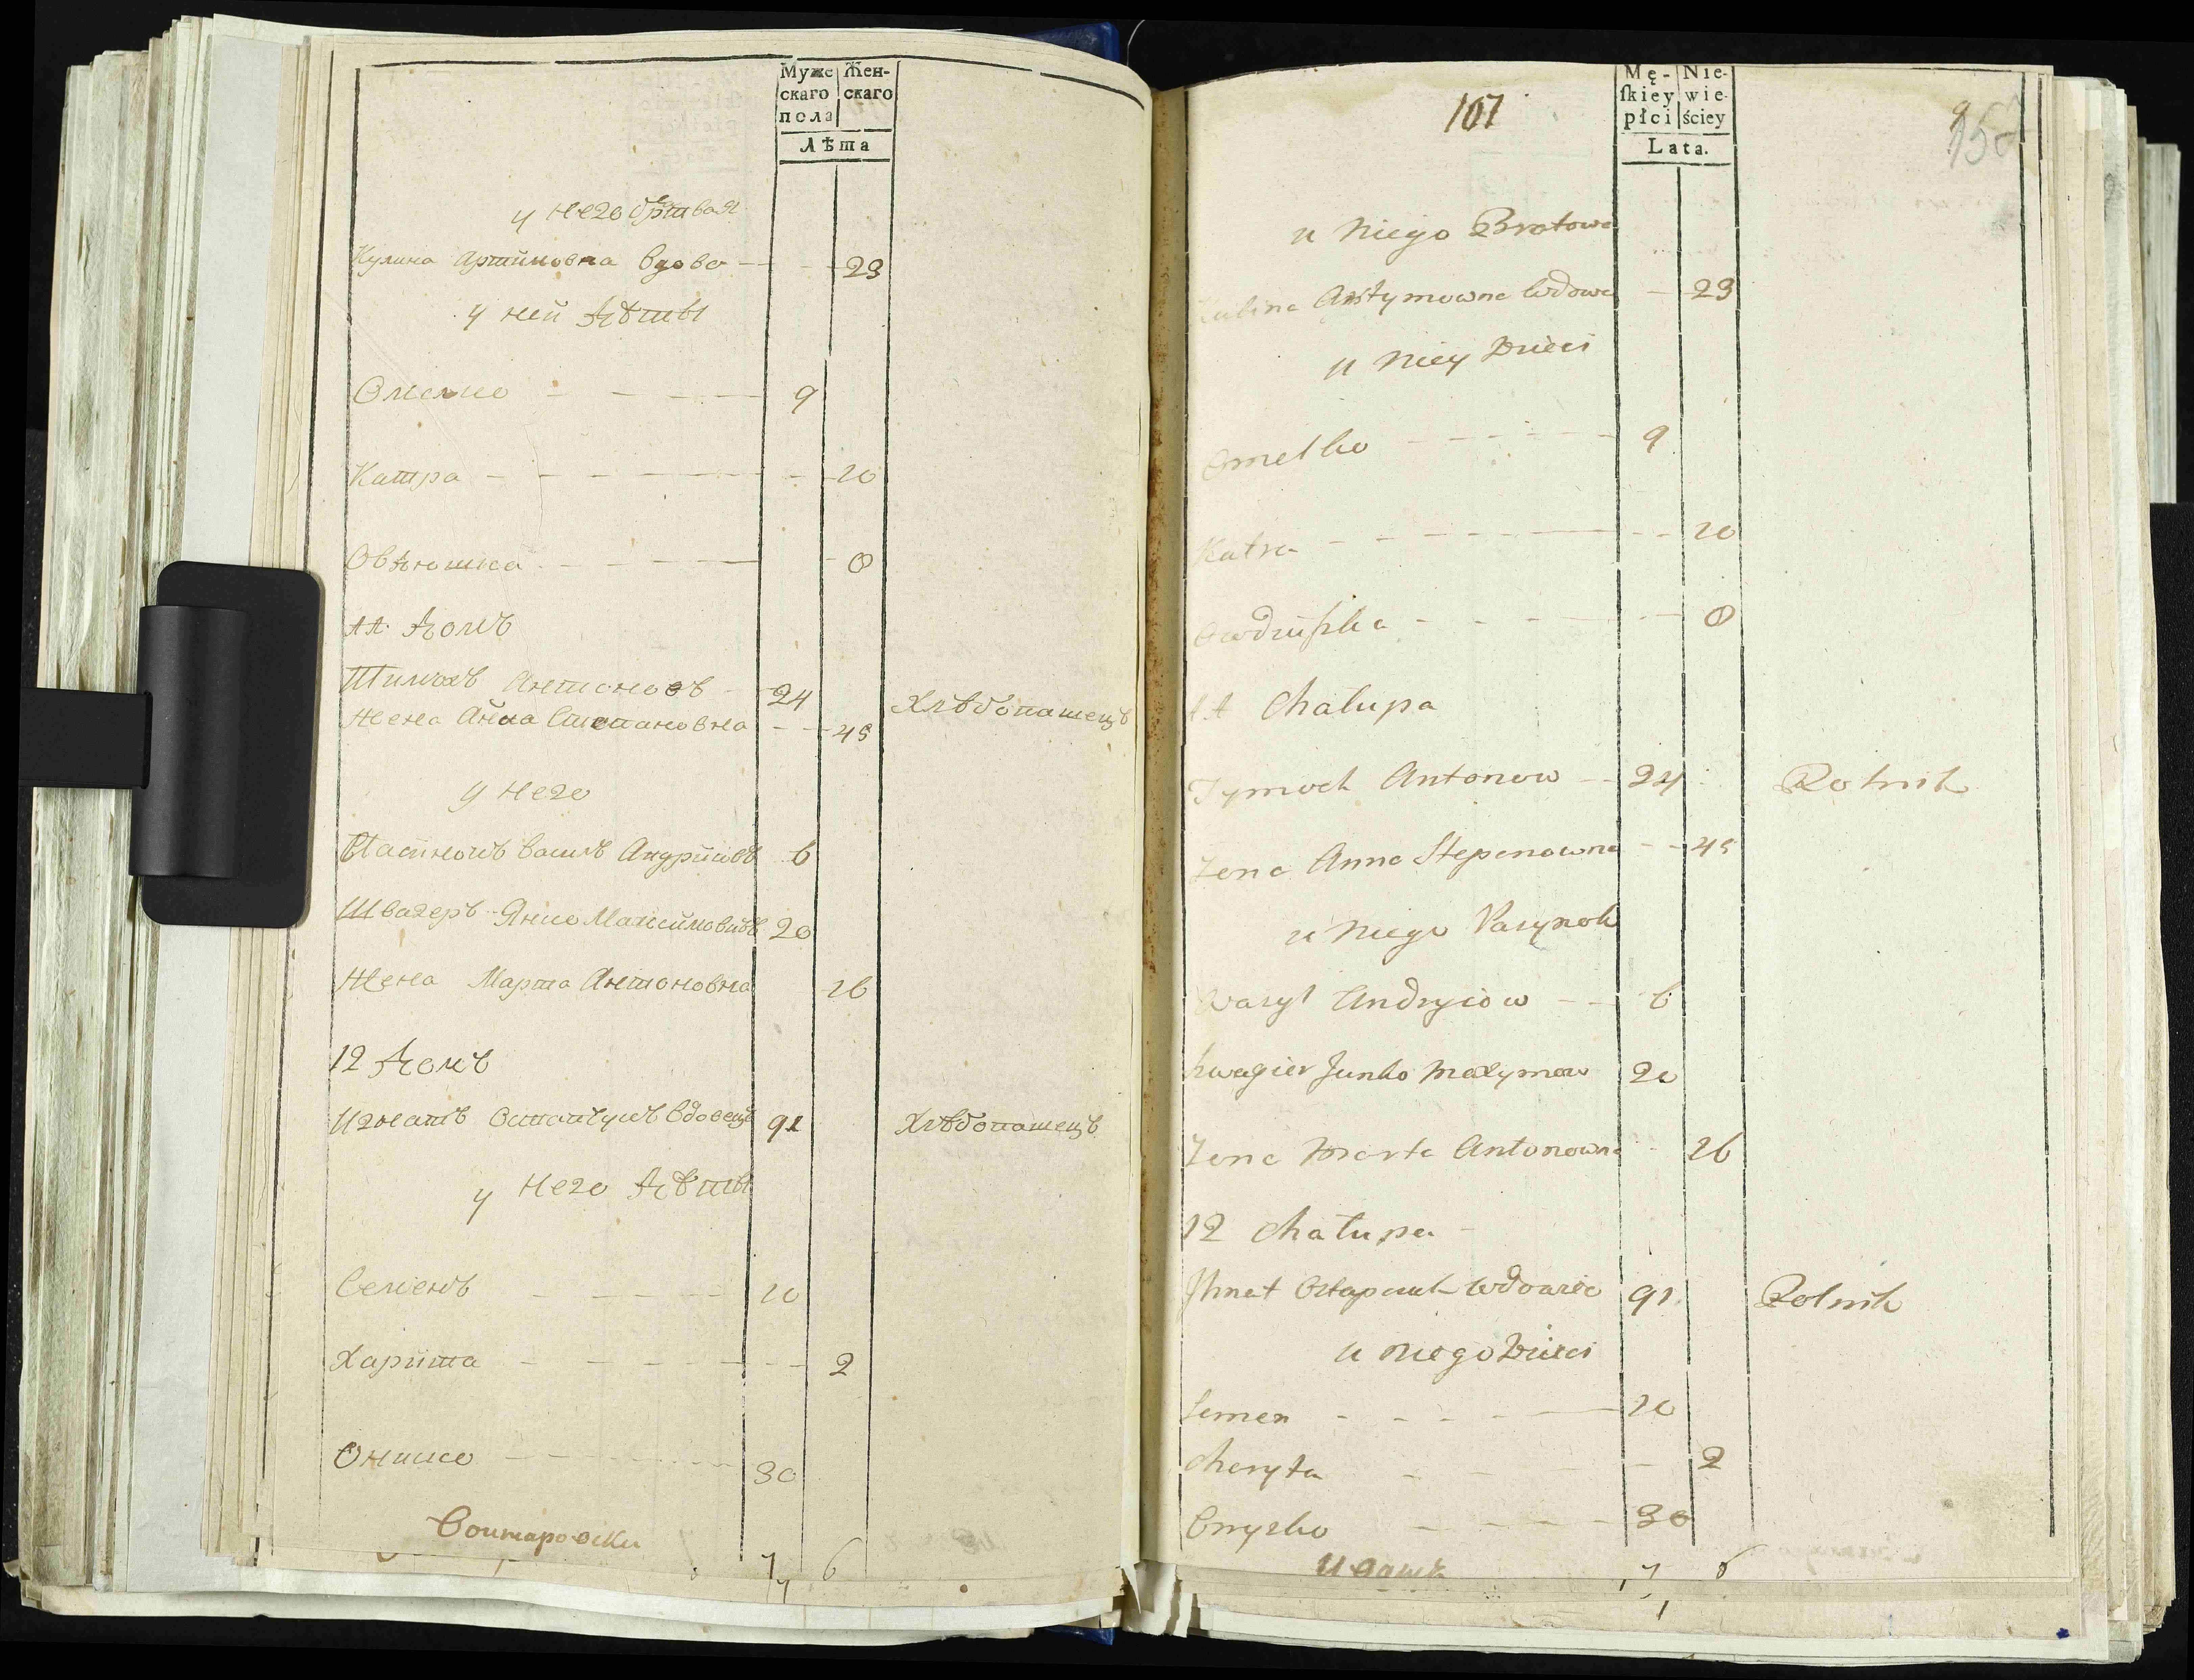 Муже Жен-
скаго скаго
пола
Лѣта
у него братвая
Кулина Артимовна вдова 29
у ней дѣти
Омелко 9
Катра 10
Овдюшка 8
11 домъ
Тимохъ Антоновъ 24 Хлѣбопашецъ
жена Анна Степановна 45
у него
Пасинокъ Василь Андріивъ 6
Швагеръ Янко Максимовъ 20
жена Марта Антоновна 26
12 домъ
Игнатъ Остапчукъ вдовецъ 91 Хлѣбопашецъ
у него дѣти
Семенъ 10
Харита 2
Ониско 30
7 6
107
Mę- Nie-
ſkiey wie-
płci ściey
Lata.
u Niego Bratowa
Kulina Artymowna wdowa 29
u Niey Dzieci
Omelko 9
Katra 10
Owdiuſzka 8
11 Chalupa
Tymoch Antonow 24 Rolnik
Zona Anna Stepanowna 45
u Niego Pasynok
Wasyl Andryiow 6
Szwagier Janko Maxymow 20
Zona Marta Antonowna 26
12 Chalupa
Ihnat Ostapczuk wdowiec 91 Rolnik
u niego Dzieci
Semen 10
Charyta 2
Onysko 30
7 6